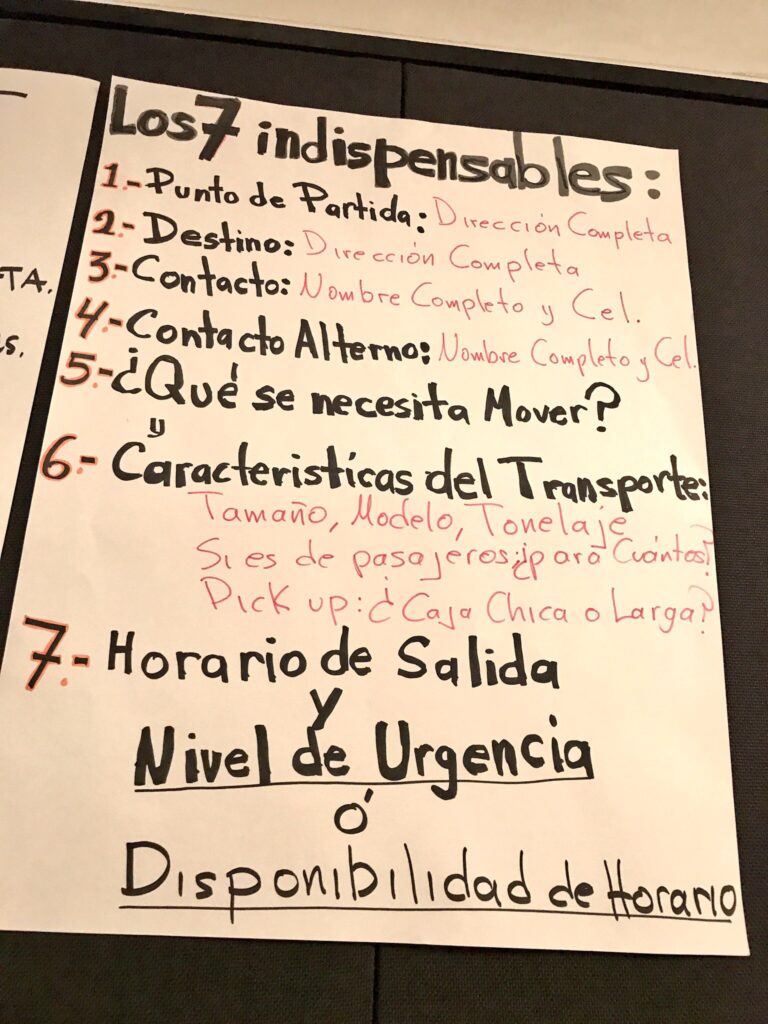 Los 7 indispensables:
1.- Punto de Partida: Dirección Completa
2.- Destino: Dirección Completa
3.- Contacto: Nombre Completo y Cel.
4.- Contacto Alterno: Nombre Completo y Cel.
5.- ¿Qué se necesita Mover?
y
6.- Caracteristicas del Transporte:
Tamaño, Modelo, Tonelaje
Si es de pasajeros: ¿para Cuántos?
Pick up: ¿Caja Chica o Larga?
7.- Horario de Salida
y
Nivel de Urgencia
ó
Disponibilidad de Horario
TA.
s.